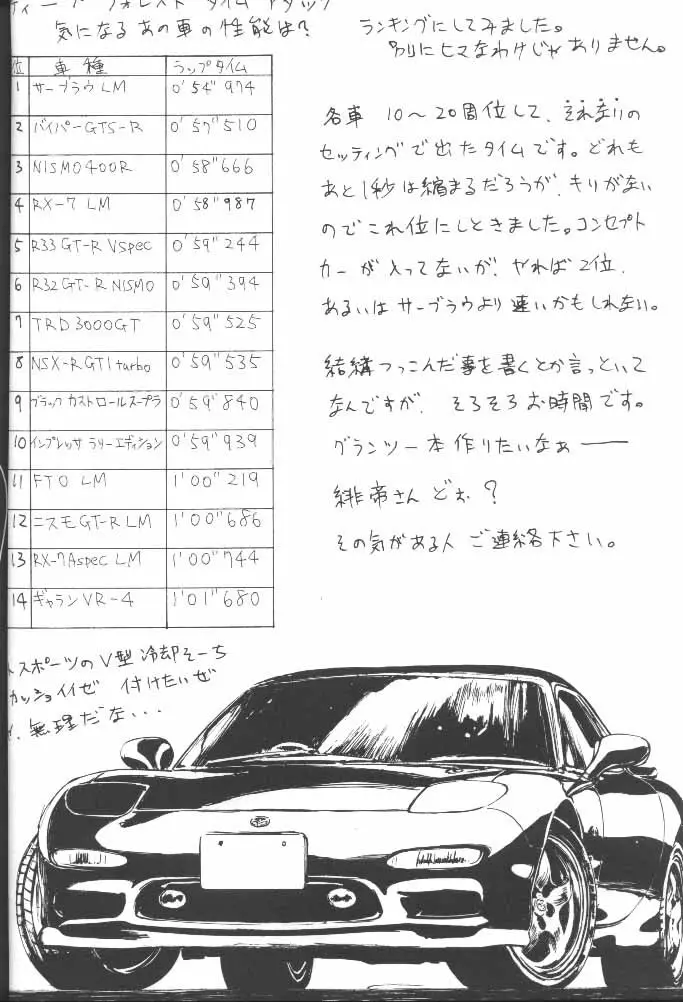 ディープ フォレスト タイムアタック
気になるあの車の性能は?
ランキングにしてみました。
別にヒマなわけじゃありません。
位 車種 ラップタイム
1 サーブラウLM 0'54"974
2 バイパーGTS-R 0'57"510
3 NISMO400R 0'58"666
4 RX-7 LM 0'58"987
5 R33GT-R VSpec 0'59"244
6 R32GT-R NISMO 0'59"394
7 TRD3000GT 0'59"525
8 NSX-RGT1turbo 0'59"535
9 ブラックカストロールスープラ 0'59"840
10 インプレッサラリーエディション 0'59"939
11 FTO LM 1'00"219
12 ニスモGT-RLM 1'00"686
13 RX-7AspecLM 1'00"744
14 ギャランVR-4 1'01"680
各車 10〜20周位して、それなりの
セッティングで出たタイムです。どれも
あと1秒は縮まるだろうが、キリがない
のでこれ位にしときました。コンセプト
カーが入ってないが、やれば2位、
あるいはサーブラウより速いかもしれない。
結構つっこんだ事を書くとか言っといて
なんですが、そろそろお時間です。
グランツー本作りたいなぁー
緋帝さんどぉ?
その気がある人ご連絡下さい。
スポーツのV型冷却そーち
カッショイイゼ 付けたいぜ
無理だな...